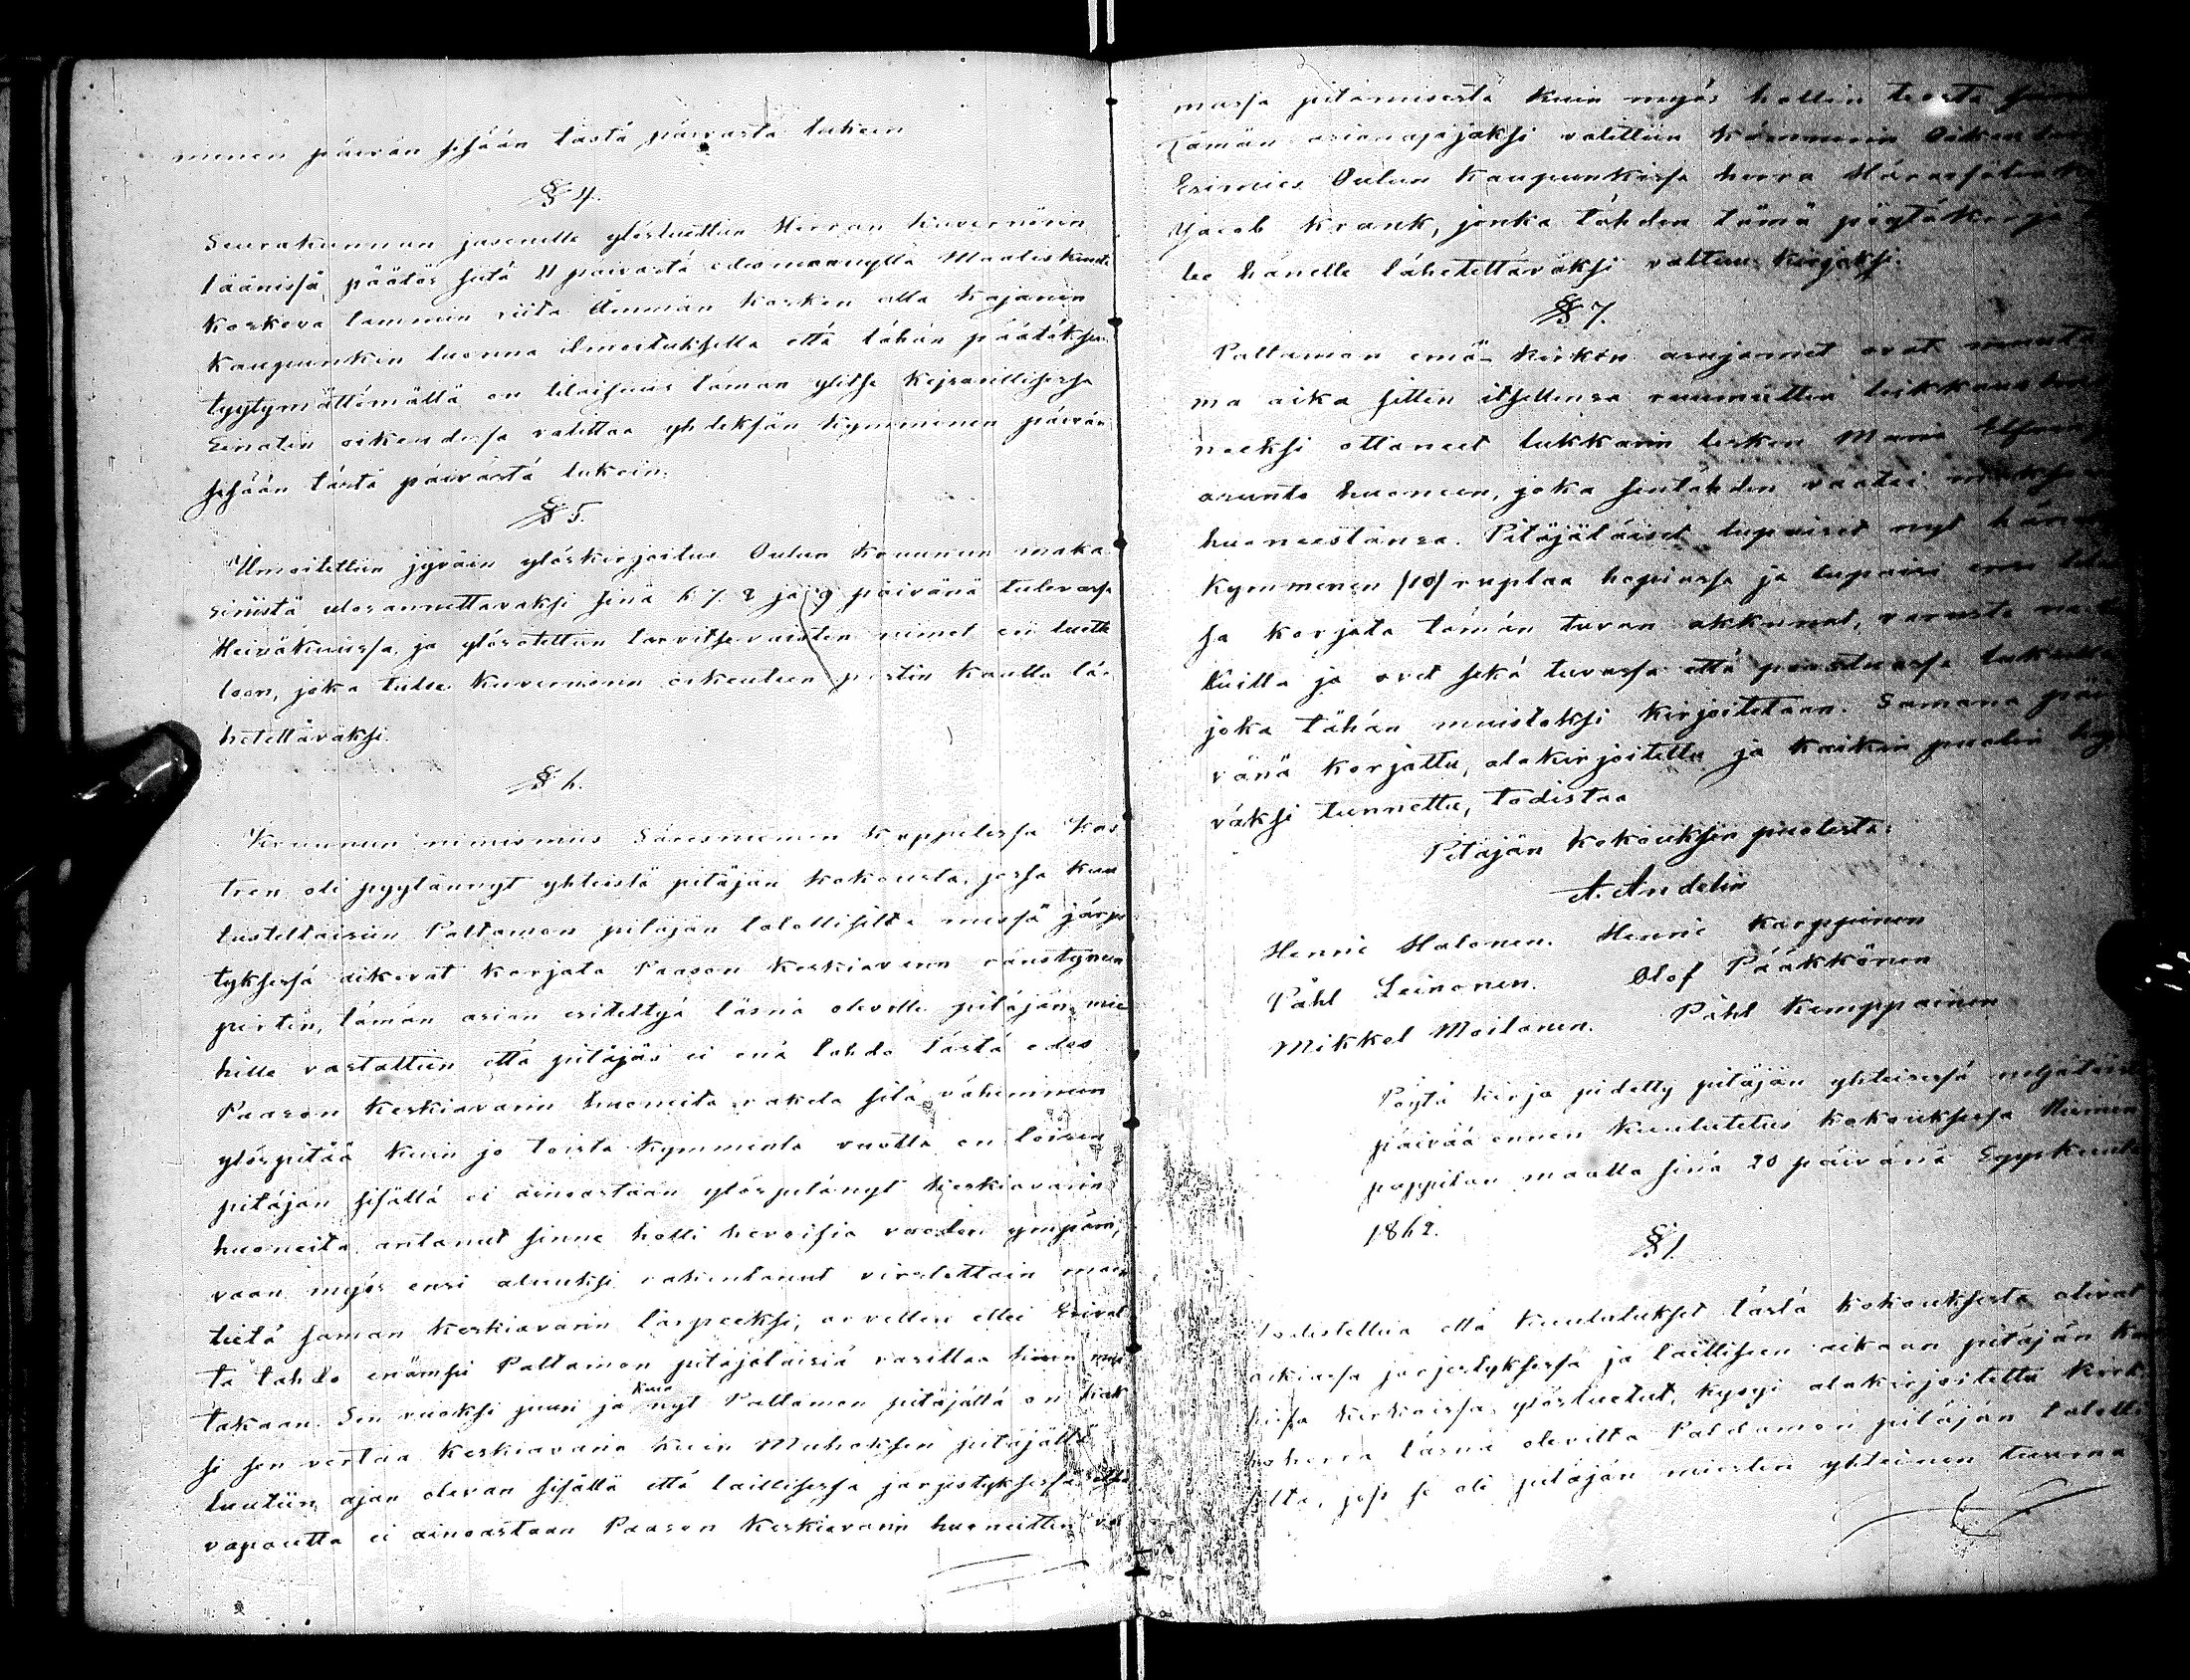 minen päivän sisään tästä päivästä lukein
§ 4.
Seurakunnan jäsenelle ylösluettiin Herran Kuvernörin
läänissä, päätös siitä 11 päivästä edesmeanyllä Maaliskuuta
koskeva lammin riita Ämmän kosken alla Kajanin
Kaupunkin luonna ilmoituksella että tähän päätöksen
tyytymättömällä on tilaisuus tämän ylitse Keisarillisessa
Senatin oikeudessa valittaa yhdeksän kymmenen päivän
sisään tästä päivästä lukein.
§ 5.
Ilmoitettiin jyväin ylöskirjoitus Oulun Kruunun maka-
siinista ulosannettavaksi sinä 6. 7. 8 ja 9 päivänä tulevassa
Heinäkuussa, ja ylösotettiin tarvitsevaisten nimet eri luette-
loon, joka tulee Kuvernörin oikeuteen postin kautta lä-
hetettäväksi.
§ 6.
Kruunun nimismies Säresniemen kappelissa Kas-
tren oli pyytännyt yhteistä pitäjän kokousta, jossa kuu-
lusteltaisiin Paltamon pitäjän talollisilta missä järjes-
tyksessä aikovat korjata Paason Keskiavarin ränstyneen
pirtin, tämän asian esiteltyä läsnä oleville pitäjän mie-
hille vastattiin että pitäjäs ei enä tahdo tästä edes
Paason Keskiavarin huoneita rakeda sitä vähemmin
ylöspitää kuin jo toista kymmentä vuotta on toisen
pitäjän sisällä ei ainoastaan ylöspitänyt Keskiavarin
huoneita, antanut sinne holli hevoisia vuoden ympäri,
vaan myös ensi aluuksi rakentanut virstottain maan
tietä saman Keskiavarin tarpeeksi, arvellen ettei Esival-
ta tahdo enämpi Paltamon pitäjäläisiä rasittaa
takaan. Sen vuoksi juuri ja kuin nyt Paltamon pitäjällä on kak-
si sen vertaa Keskiavaria kuin Muhoksen pitäjällä
luutiin ajan olevan sisällä että laillisessa järjestyksessä
vapautta ei ainoastaan Paason Keskiavarin huoneitten
massa pitämisestä kuin myös hollin teosta
Tämän asianajajaksi valittiin Kämnerin Oikeuden
Esimies Oulun Kaupunkissa herra Häradshöfding
Jacob Krank, jonka tähden tämä pöytäkirja tu-
lee hänelle lähetettäväksi valtuus kirjaksi.
§ 7.
Paltamon emä-kirkon asujamet ovat muuta-
ma aika sitten itsellensä ruumitten leikkaus huo-
neeksi ottaneet lukkarin lesken Maria
asunto huoneen, joka sentähden vaatei maksoa
huoneestansa. Pitäjäläiset lupaisit nyt hänelle
Kymmenen /10/ ruplaa hopiassa ja lupaisi ensi
sa korjata tämän tuvan akkunat, varusta
luilla ja ovet sekä tuvassa että porstuassa lukuilla
joka tähän muistoksi kirjoitetaan. Samana päi-
vänä korjattu, alakirjoitettu ja kaikin puolin hy-
väksi tunnettu, todistaa
Pitäjän kokouksen puolesta:
A. Andelin
Henric Halonen. Henric Karppinen
Påhl Leinonen. Olof Pääkkönen
Mikkel Moilanen. Påhl Kemppainen
Pöytä kirja pidetty pitäjän yhteisessä neljätoista
päivää ennen kuulutetus kokouksessa
pappilan maalla sinä 20 päivänä Syyskuuta
1862.
§ 1.
Todistettua että kuulutukset tästä kokouksesta olivat
oikiassa järjestyksessä ja lailliseen aikaan pitäjän
kirkoissa ylösluetut, kysyi alakirjoitettu kirk-
koherra läsnä olevilta Paldamon pitäjän talolli-
silta, jos se oli pitäjän miesten yhteinen tuuma